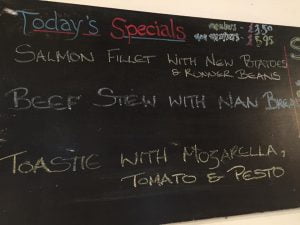 Today's Specials
members -
non members - £5.95
SALMON FILLET WITH NEW POTATOES
& RUNNER BEANS
BEEF STEW WITH NAN BREAD
TOASTIE WITH MOZARELLA,
TOMATO & PESTO